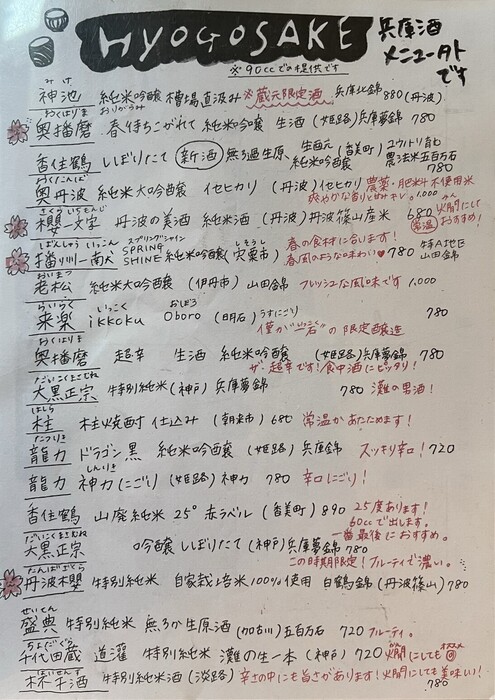 HYOGOSAKE 兵庫酒
メニュータト
です
※90ccでの提供です
みけ
神池 純米吟醸 槽場直汲み ※蔵元限定酒 兵庫北錦 880 (丹波)
おくはりま
奥播磨 春待ちこがれて 純米吟醸 生酒 (姫路)兵庫夢錦 780
香住鶴 しぼりたて 新酒 無ろ過生原、生酛 純米吟醸 (香美町) コウノトリ育む農法米五百万石 780
おくたんば
奥丹波 純米大吟醸 イセヒカリ (丹波) イセヒカリ 農薬・肥料不使用米
爽やかな香りと旨みキレ。1,000
さくらいちもんじ
櫻一文字 丹波の美酒 純米酒 (丹波) 丹波篠山産米 680 火燗にして
常温 おすすめ!
ばんしゅういっこん スプリングシャイン しそうし
播州一献 SPRING SHINE 純米吟醸 (宍粟市) 春の食材に合います!
春風のような味わい♥ 780 特A地区 山田錦
おいまつ
老松 純米大吟醸 (伊丹市) 山田錦 フレッシュな風味です 1,000
らいらく いっこく おぼろ
来楽 ikkoku Oboro (明石) うすにごり 780
僅か"一石"の限定醸造
おくはりま
奥播磨 超辛 生酒 純米吟醸 (姫路)兵庫夢錦 780
ザ・超辛です!食中酒にピッタリ!
だいこくまさむね
大黒正宗 特別純米 (神戸) 兵庫夢錦 780 灘の男酒!
はしら
柱 柱焼酎仕込み (朝来市) 680 常温かあたためます!
たつりき
龍力 ドラゴン黒 純米吟醸 (姫路) 兵庫錦 スッキリ辛口! 720
しんりき
龍力 神力 (にごり) (姫路) 神力 780 辛口にごり!
香住鶴 山廃純米 25° 赤ラベル (香美町) 890 25度あります!
60ccで出します。
一番最後におすすめ。
だいこくまさむね
大黒正宗 吟醸 しぼりたて (神戸)兵庫夢錦 780
この時期限定!フルーティで濃い。
たんばざくら
丹波櫻 特別純米 自家栽培米100%使用 白鶴錦 (丹波篠山) 780
せいてん
盛典 特別純米 無ろか生原酒 (加古川) 五百万石 720 フルーティ。
ちよだぐら
千代田蔵 道灌 特別純米 灘の生一本 (神戸) 720 火燗にしても◎
特別純米酒 (淡路) 辛さの中にも旨さがあります!火燗にしても美味しい!
780